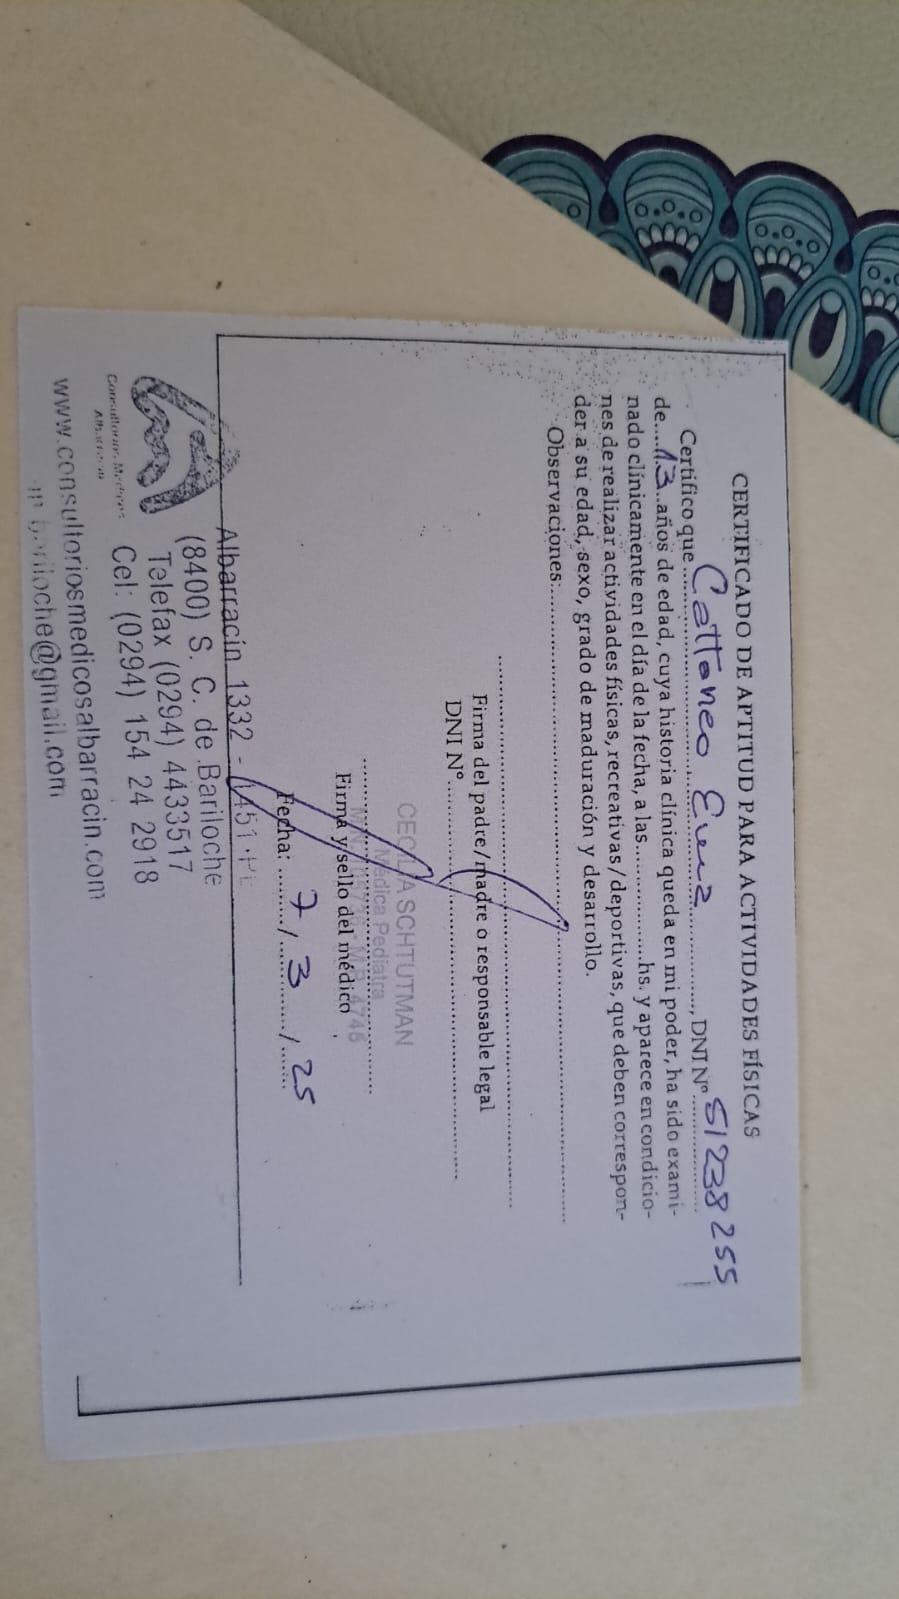 CERTIFICADO DE APTITUD PARA ACTIVIDADES FÍSICAS
Certifico que Cattaneo, DNI Nº 51238255
de....13..años de edad, cuya historia clínica queda en mi poder, ha sido exami-
nado clínicamente en el día de la fecha, a las..............hs. y aparece en condicio-
nes de realizar actividades físicas, recreativas/deportivas, que deben correspon-
der a su edad, sexo, grado de maduración y desarrollo.
Observaciones:
Firma del padre/madre o responsable legal
DNI Nº
CECILIA SCHTUTMAN
Médica Pediatra
M.P. 4746
Firma y sello del médico
Fecha: 7/3/25
Albarracín 1332 -
(8400) S. C. de Bariloche
Telefax (0294) 4433517
Cel: (0294) 154 24 2918
Consultorios Médicos
Albarracín
www.consultoriosmedicosalbarracin.com
bariloche@gmail.com